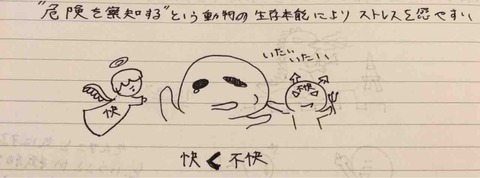 "危険を察知する"という動物の生存本能によりストレスを感じやすい
いたい いたいい
快
不快
快 < 不快